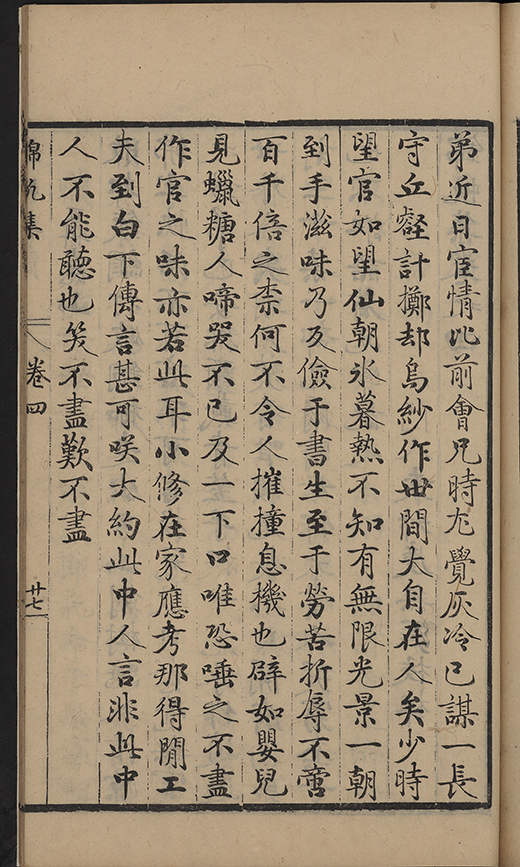 弟近日宦情比前會兄時尤覺灰冷已謀一長
守丘壑計擲却烏紗作世間大自在人矣少時
望官如望仙朝氷暮熱不知有無限光景一朝
到手滋味乃反儉于書生至于勞苦折辱不啻
百千倍之柰何不令人摧撞息機也辟如嬰兒
見蠟糖人啼哭不已及一下口唯恐唾之不盡
作官之味亦若此耳小修在家應考那得閒工
夫到白下傳言甚可咲大約此中人言非此中
人不能聽也笑不盡歎不盡
錦帆集
卷四
廿七